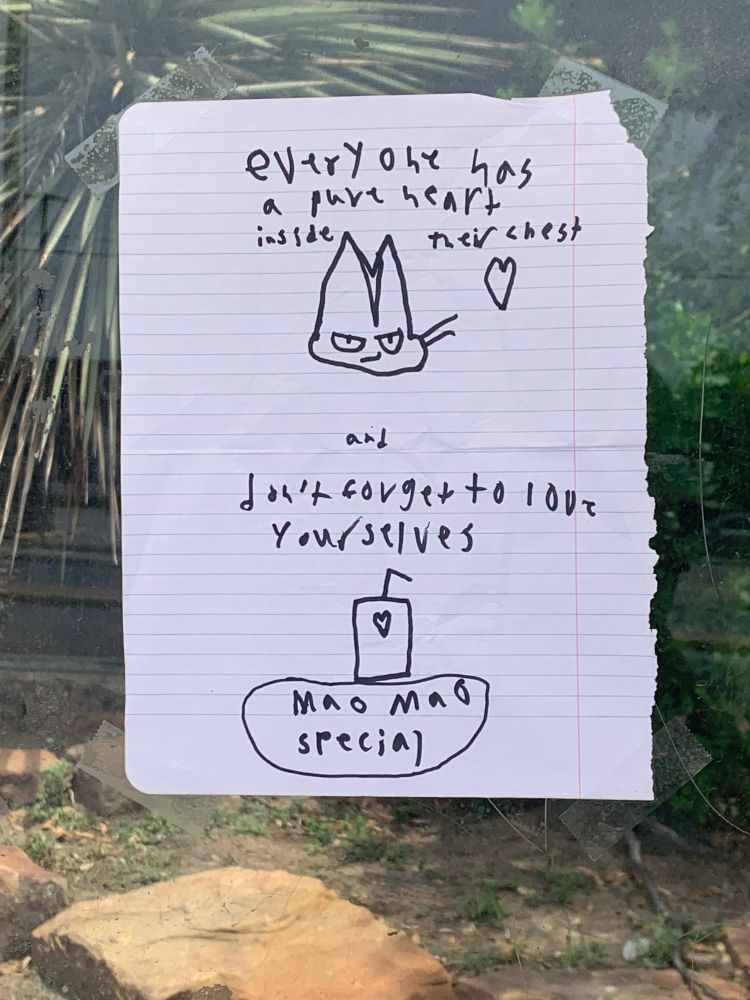 everyone has
a pure heart
inside their chest
and
don't forget to love
yourselves
Mao Mao
special